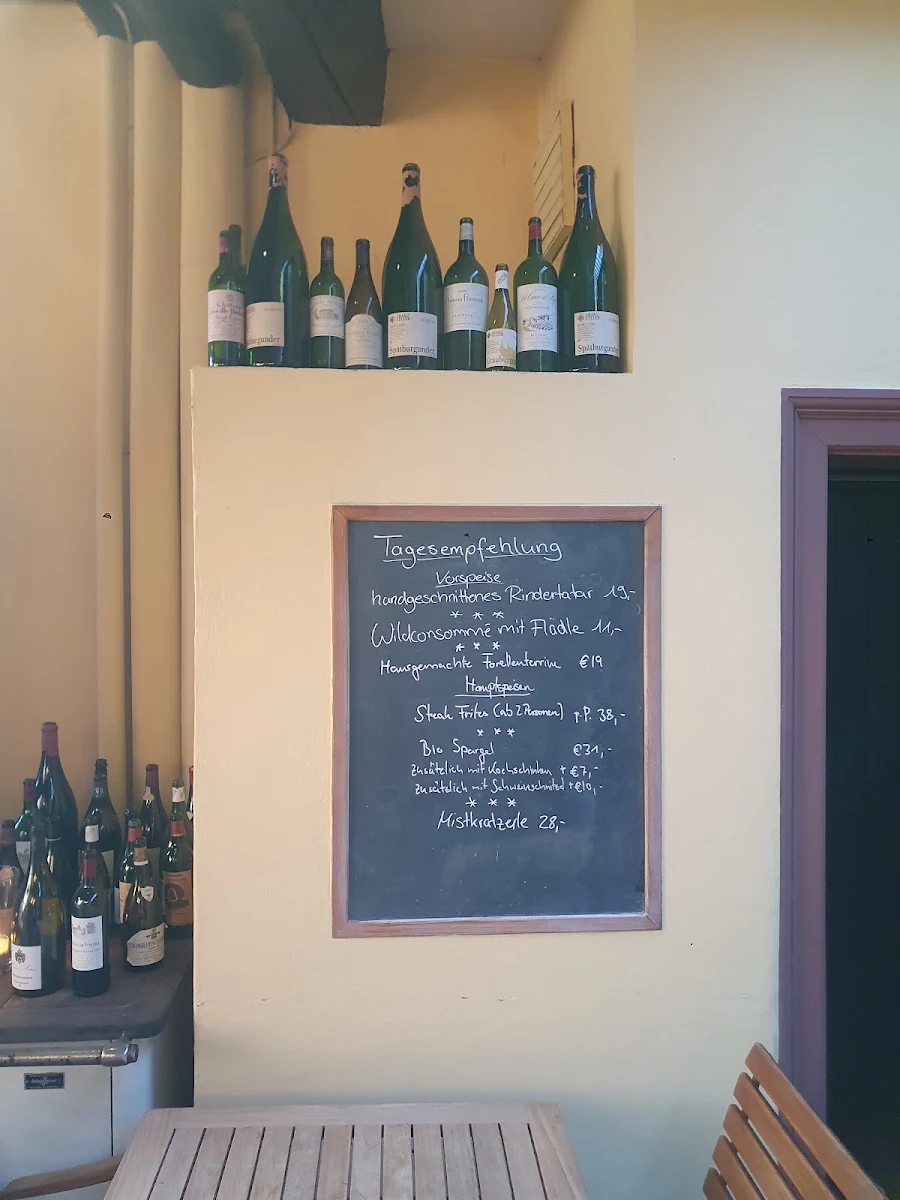 Spätburgunder
Spätburgunder
Tagesempfehlung
Vorspeise
handgeschnittenes Rindertatar 19,-
* * *
Wildconsommé mit Flädle 11,-
* * *
Hausgemachte Forellenterrine €19
Hauptspeisen
Steak Frites (ab 2 Personen) p.P. 38,-
* * *
Bio Spargel €31,-
zusätzlich mit Kochschinken + €7,-
zusätzlich mit Schweinschnitzel + €10,-
* * *
Mistkratzerle 28,-